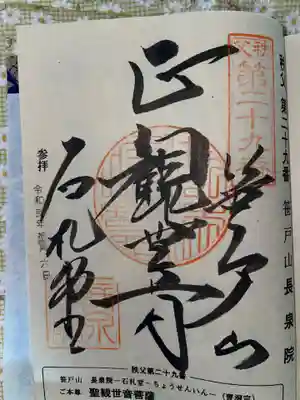 秩父 第二十九番 笹戸山長泉院
秩父
第二十九番
笹戸山
正観世音
石札堂
参拝
令和
秩父第二十九番
笹戸山 長泉院―石札堂―ちょうせんいん― (曹洞宗)
ご本尊 聖観世音菩薩